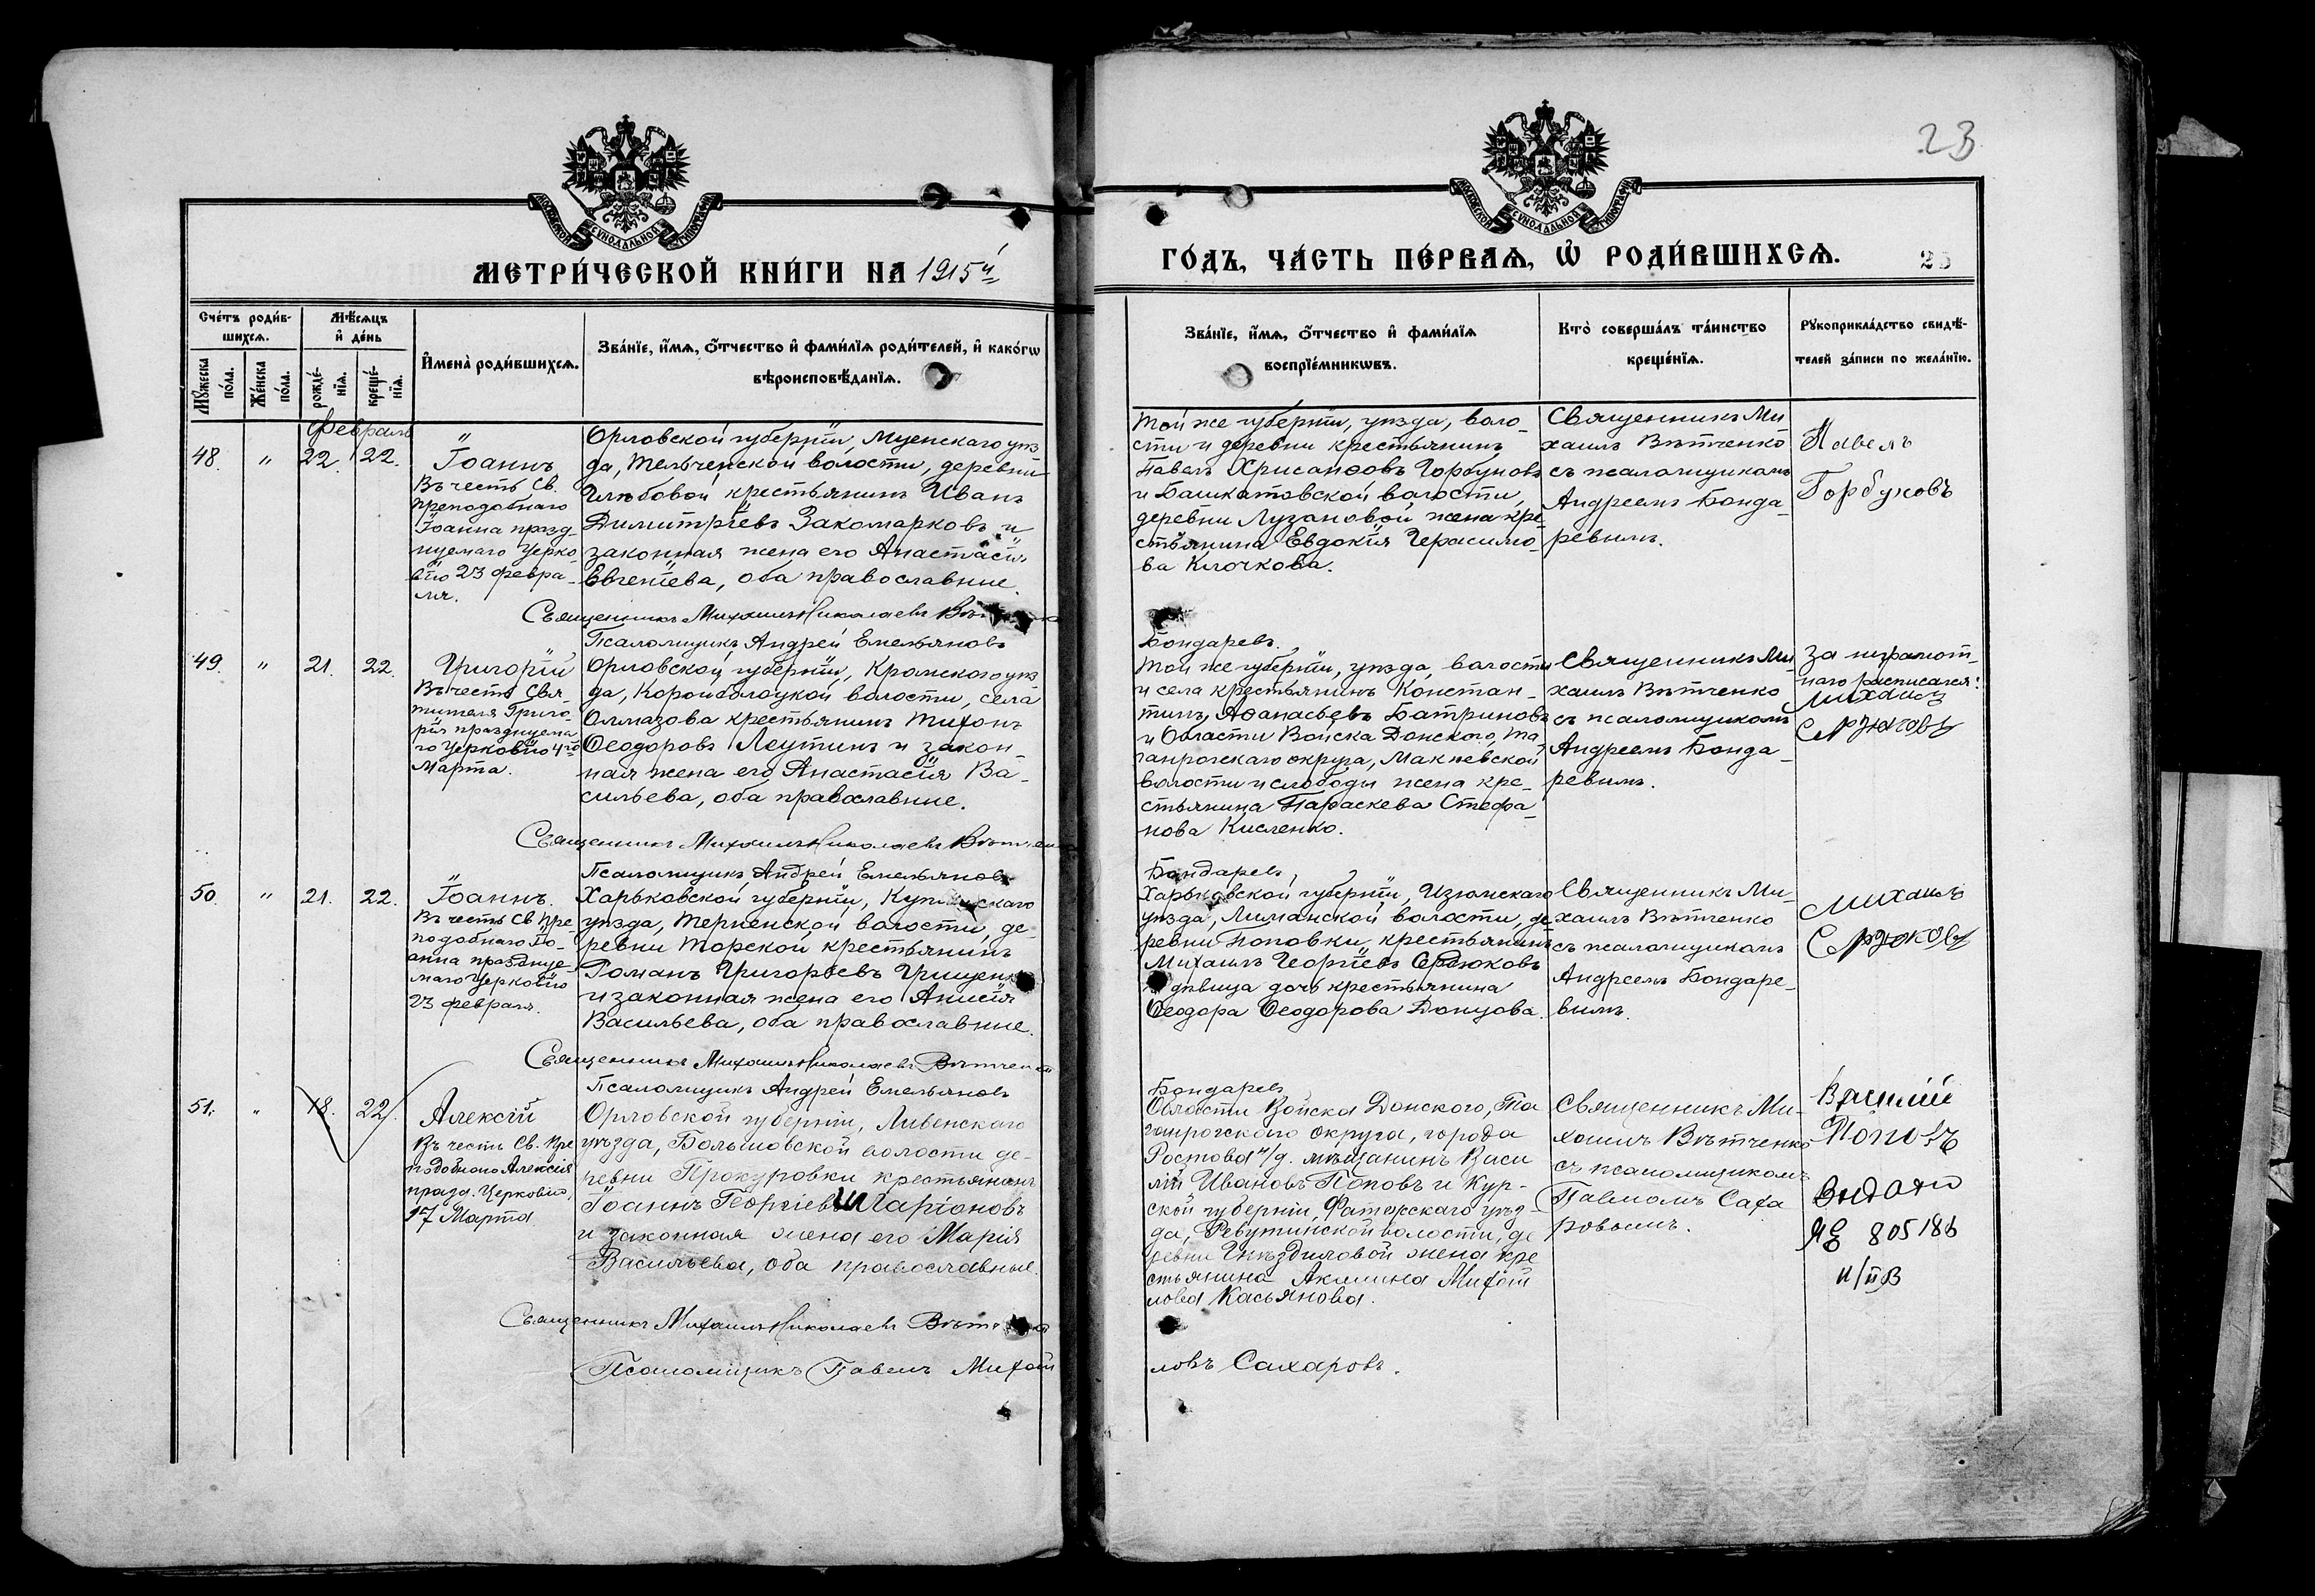 23
МОСКОВСКОЙ СѴНОДАЛЬНОЙ ТИПОГРАФІИ
МОСКОВСКОЙ СѴНОДАЛЬНОЙ ТИПОГРАФІИ
МЕТРИ́ЧЕСКОЙ КНИ́ГИ НА 1915й
ГО́ДЪ, ЧА́СТЬ ПЕ́РВАѦ, Ѡ҆ РОДИ́ВШИХСѦ.
Сче́тъ роди́в-
шихсѧ.
Мѣ́сѧцъ
и҆ де́нь
Мꙋ́жеска по́ла.
Же́нска по́ла.
рожде́-
нїѧ.
креще́-
нїѧ.
И҆мена̀ роди́вшихсѧ.
Зва́нїе, и҆́мѧ, ѻ҆́тчество и҆ фами́лїѧ роди́телей, и҆ како́гѡ
вѣроисповѣ́данїѧ.
Зва́нїе, и҆́мѧ, ѻ҆́тчество и҆ фами́лїѧ
воспрїе́мникѡвъ.
Кто̀ соверша́лъ та́инство
креще́нїѧ.
Рꙋкоприкла́дство свидѣ́-
телей за́писи по жела́нїю.
Февраль
48.
"
22.
22.
Іоаннъ
Въ честь Св.
преподобнаго
Іоанна празд-
нуемаго Церко-
вію 23 февра-
ля.
Орловской губерніи, Мценскаго уѣз-
да, Тельченской волости, деревни
Глѣбовой крестьянинъ Иванъ
Димитріевъ Закомарковъ и
законная жена его Анастасія
Евгеніева, оба православные.
Священникъ Михаилъ Николаевъ
Псаломщикъ Андрей Емельяновъ
Той же губерніи, уѣзда, воло-
сти и деревни крестьянинъ
Павелъ Хрисанфовъ Горбуновъ
и Башкатовской волости,
деревни Лузановой жена кре-
стьянина Евдокія Герасимо-
ва Клочкова.
Бондаревъ.
Священникъ Ми-
хаилъ Вѣтченко
съ псаломщикомъ
Андреемъ Бонда-
ревымъ.
Павелъ
Горбуновъ
49.
"
21.
22.
Григорій
Въ честь Свя-
тителя Григо-
рія празднуема-
го Церковію 4го
Марта.
Орловской губерніи, Кромскаго уѣз-
да, Короиболоцкой волости, села
Олмазова крестьянинъ Тихонъ
Ѳеодоровъ Леутинъ и закон-
ная жена его Анастасія Ва-
сильева, оба православные.
Священникъ Михаилъ Николаевъ
Псаломщикъ Андрей Емельяновъ
Той же губерніи, уѣзда, волости
и села крестьянинъ Констан-
тинъ Аѳанасьевъ Батриновъ
и Области Войска Донского, Та-
ганрогскаго округа, Макѣевской
волости и слободы жена кре-
стьянина Параскева Стефа-
нова Кисленко.
Бондаревъ,
Священникъ Ми-
хаилъ Вѣтченко
съ псаломщикомъ
Андреемъ Бонда-
ревымъ.
За неграмот-
наго расписался:
Михаилъ
Сердюковъ
50.
"
21.
22.
Іоаннъ.
Въ честь Св Пре-
подобнаго Іо-
анна праздуе-
маго Церковію
23 февраля.
Харьковской губерніи,
уѣзда, Терненской волости, де-
ревни Торской крестьянинъ
Романъ Григорьевъ
и законная жена его Анисія
Васильева, оба православные.
Священникъ Михаилъ Николаевъ
Псаломщикъ Андрей Емельяновъ
Харьковской губерніи, Изюмскаго
уѣзда, Лиманской волости, де-
ревни Поповки крестьянинъ
Михаилъ Георгіевъ Сердюковъ
дѣвица дочь крестьянина
Ѳеодора Ѳеодорова Донцова.
Бондаревъ
Священникъ Ми-
хаилъ Вѣтченко
съ псаломщикомъ
Андреемъ Бондаре-
вымъ.
Михаилъ
Сердюковъ
51.
"
18.
22.
Алексій
Въ честь Св. Пре-
подобнаго Алексія
празд. Церковію
17 Марта.
Орловской губерніи, Ливенскаго
уѣзда, Большовской волости де-
ревни Прокуровки крестьянинъ
Іоаннъ Георгіевъ Иларіоновъ
и законная жена его Марія
Васильева, оба православные.
Священникъ Михаилъ Николаевъ
Псаломщикъ Павелъ Михаи
Области Войска Донского, Та-
ганрогскаго округа, города
Ростова н/д. мѣщанинъ Васи
лій Ивановъ Поповъ и Кур-
ской губерніи, Фатежскаго уѣз-
да, Ревутинской волости, де
ревни Гнѣздиловой жена кре
стьянина Акилина Михаи
лова Касьянова.
ловъ Сахаровъ.
Священникъ Ми-
хаилъ Вѣтченко
съ псаломщикомъ
Павломъ Саха
ровымъ.
Василій
Поповъ
Выдано
ЯЕ 805186